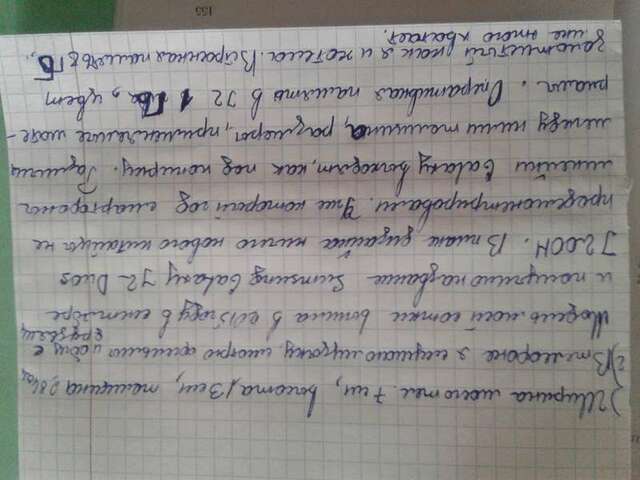 1) Ширина моего тел. 7 см, высота 13 см, толщина 0,84 см
2) В телефоне я слушаю музыку, смотрю фильмы и общ с
друзьями
Модель моей сотки вышла в 2015 году в сентябре
и получило название Sumsung Galaxy J2 Duos
J200H. В плане дизайна ничего нового китайцы не
продемонстрировали. Уже который год смартфоны
линейки Galaxy выходят, как под копирку. Различия
между ними толщина, размеры, применяемые мате-
риалы. Оперативная память в J2 1 Гб, цвет
золотистый как я и хотела. Встроенная память 8 ГБ,
мне этого хватает.
155